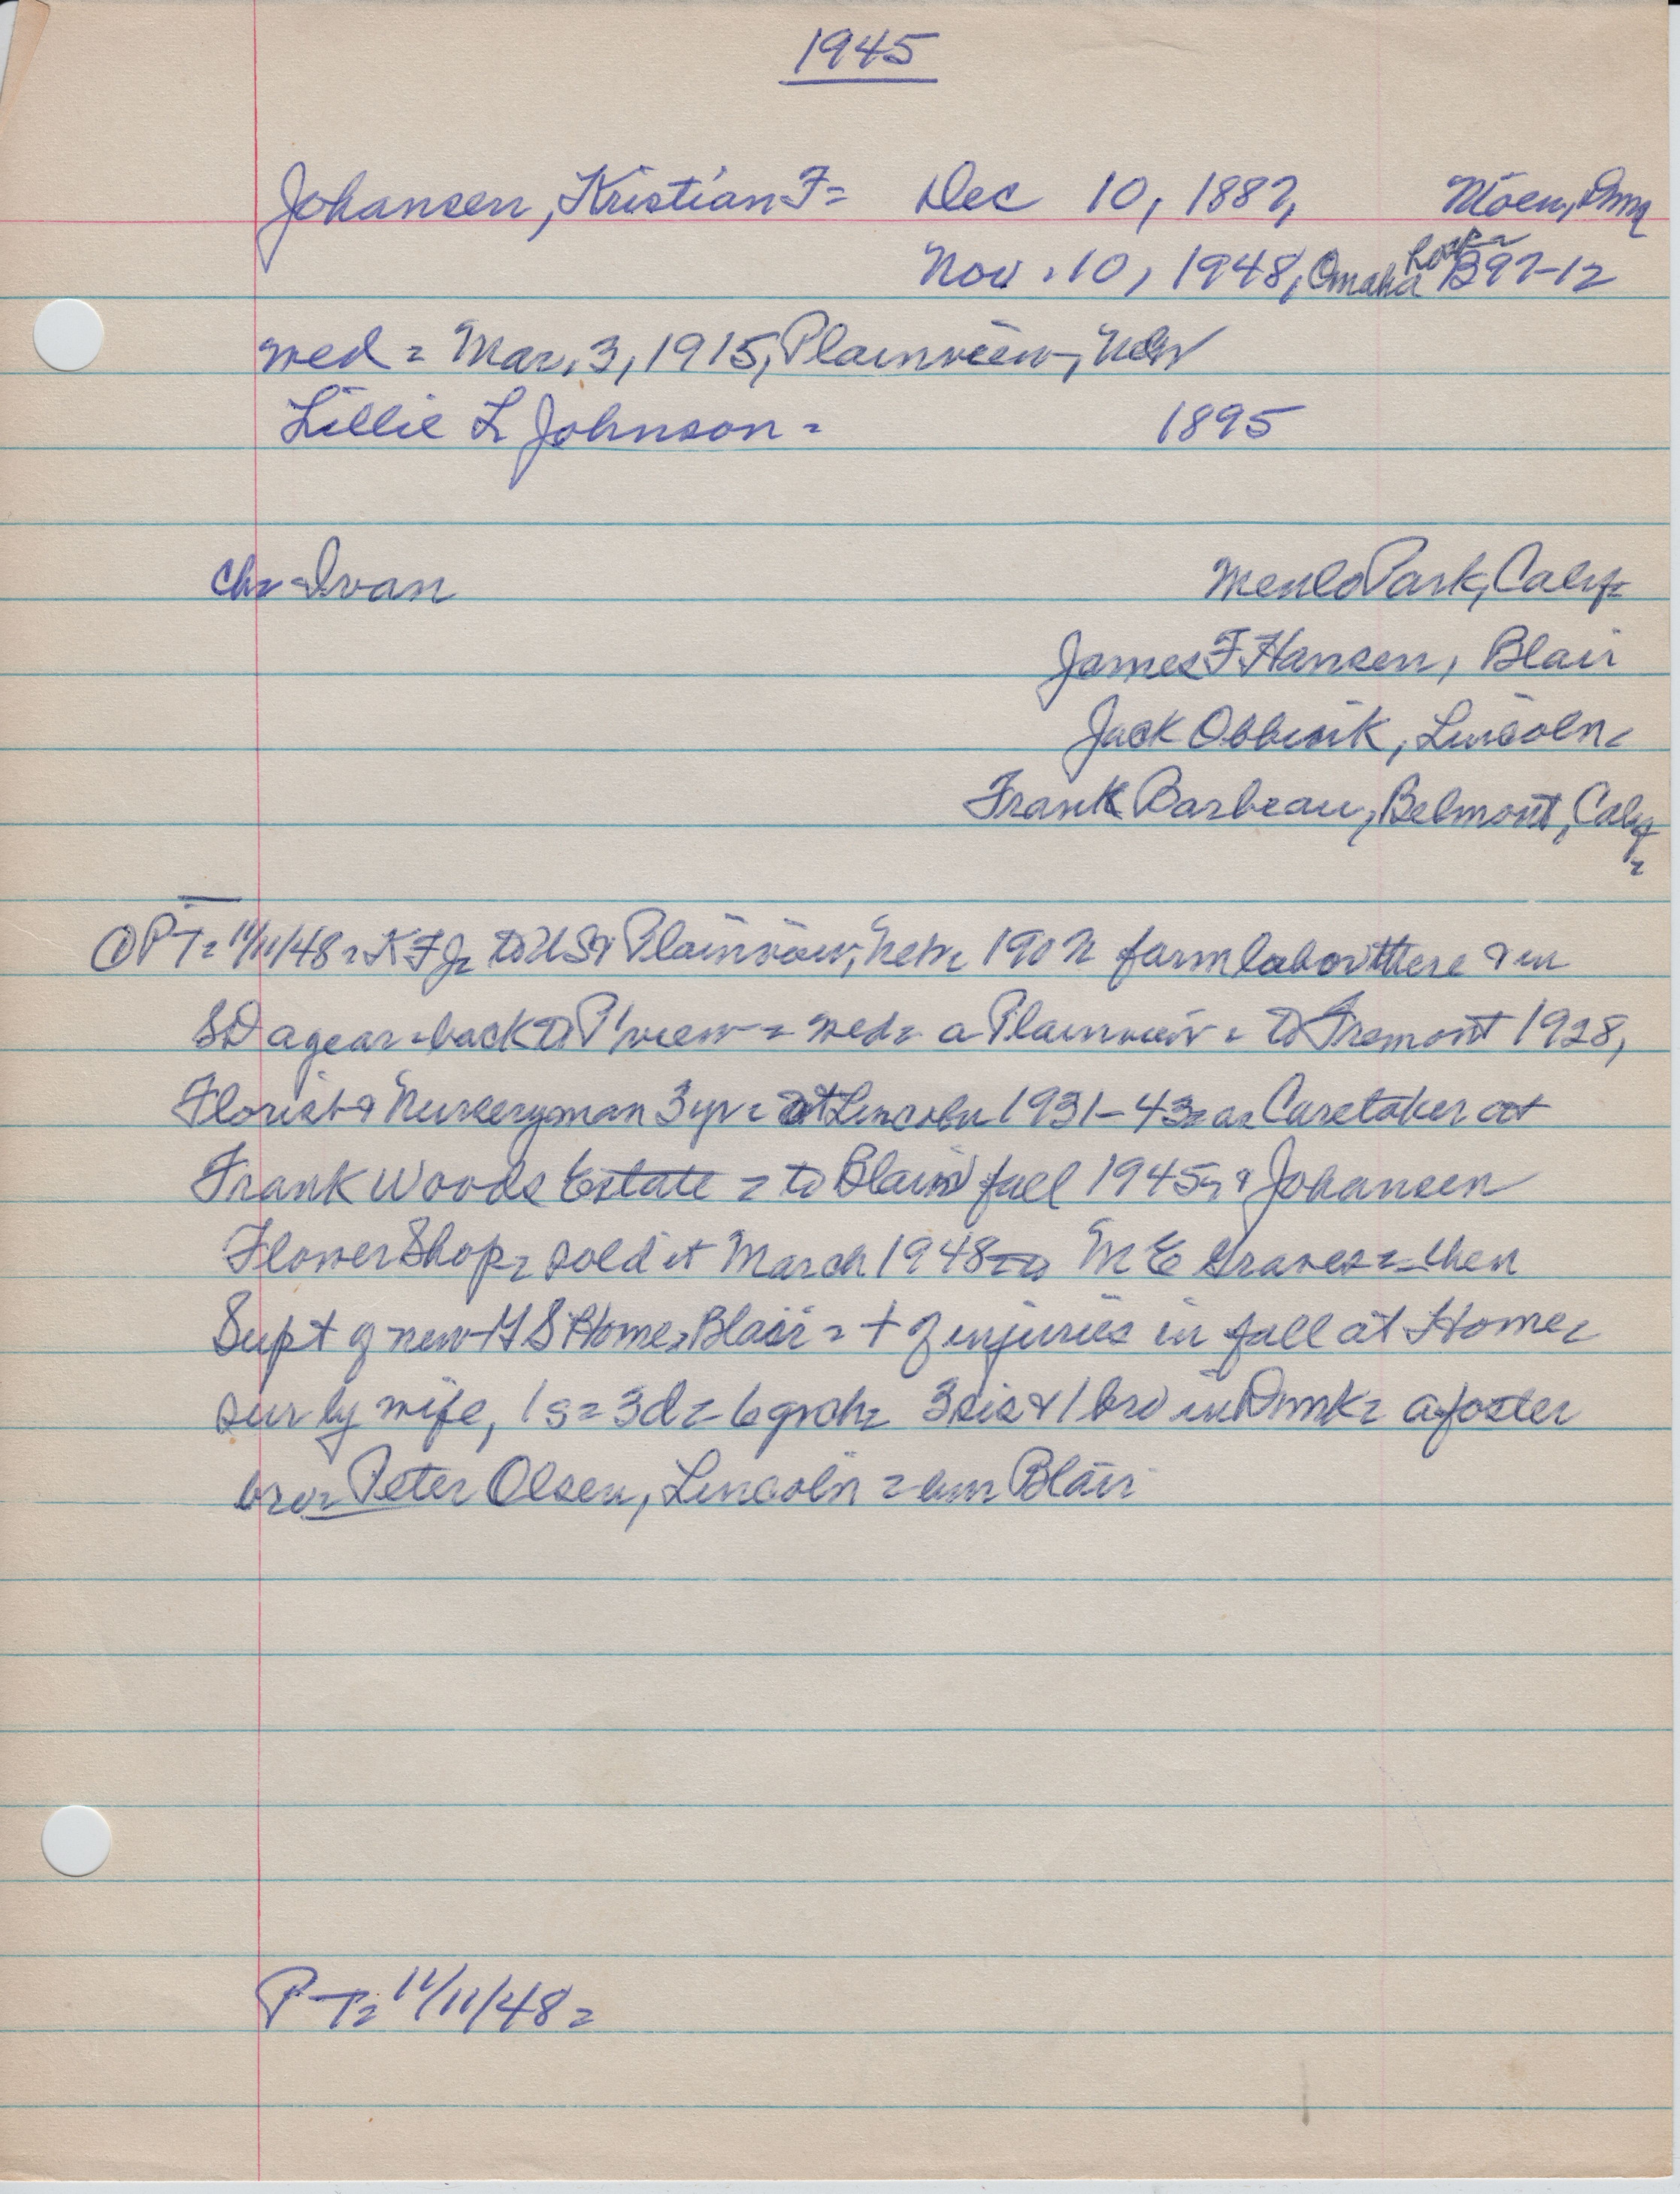 1945
Johansen, Kristian F = Dec 10, 1887, Moen, Dmk
Nov. 10, 1948, Omaha hosp = B97-12
wed = Mar, 3, 1915, Plainview, Neb
Lillie L Johnson = 1895
ch = Ivan Menlo Park, Calif =
James F Hansen, Blair
Jack Obbink, Lincoln =
Frank Barbeau, Belmont, Calif =
① PT = 11/11/48 = KFJ = to US & Plainview, Neb = farm labor there & in
SD a year = back to P'view = wed = a Plainview = to Fremont 1928,
Florist & Nurseryman 3 yr = at Lincoln 1931-43 = as Caretaker at
Frank Woods Estate = to Blair fall 1945 = & Johansen
Flower Shop = sold it March 1948 to M E Graves = then
Supt of new Home, Blair = + of injuries in fall at Home =
sur by wife, 1 s = 3 d = 6 grch = 3 sis & 1 bro in Dnmk = a foster
bro = Peter Olsen, Lincoln = bur Blair
PT = 11/11/48 =